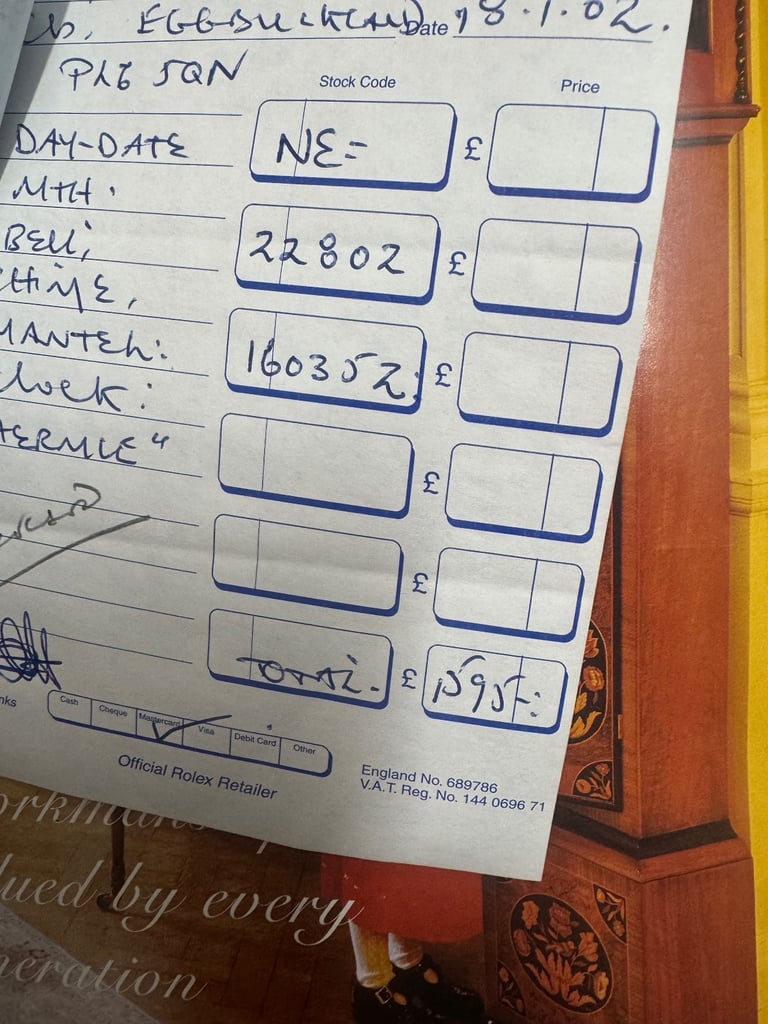 EGGBUCKLAND Date 18.1.02.
PL6 5QN
Stock Code Price
DAY-DATE NE= £
MTH.
BELL, 22802 £
CHIME,
MANTEL: 160352: £
CLOCK:
HERMLE" £
£
TOTAL. £ 1595-:
nks
Cash Cheque Mastercard Visa Debit Card Other
Official Rolex Retailer
England No. 689786
V.A.T. Reg. No. 144 0696 71
orkmans
lued by every
neration